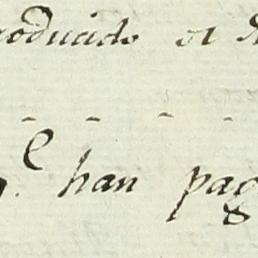 roducido el
q.e han pag